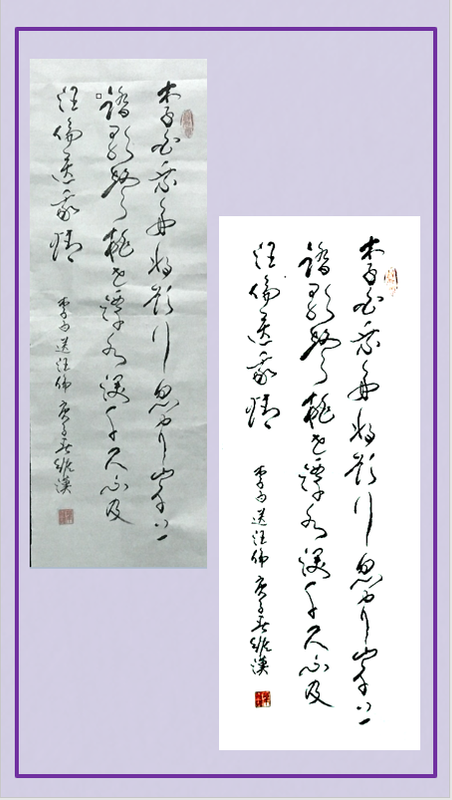 李白乘舟将欲行忽闻岸上
踏歌声桃花潭水深千尺不及
汪倫送我情
李白送汪倫 庚子春
李白乘舟将欲行忽闻岸上
踏歌声桃花潭水深千尺不及
汪倫送我情
李白送汪倫 庚子春